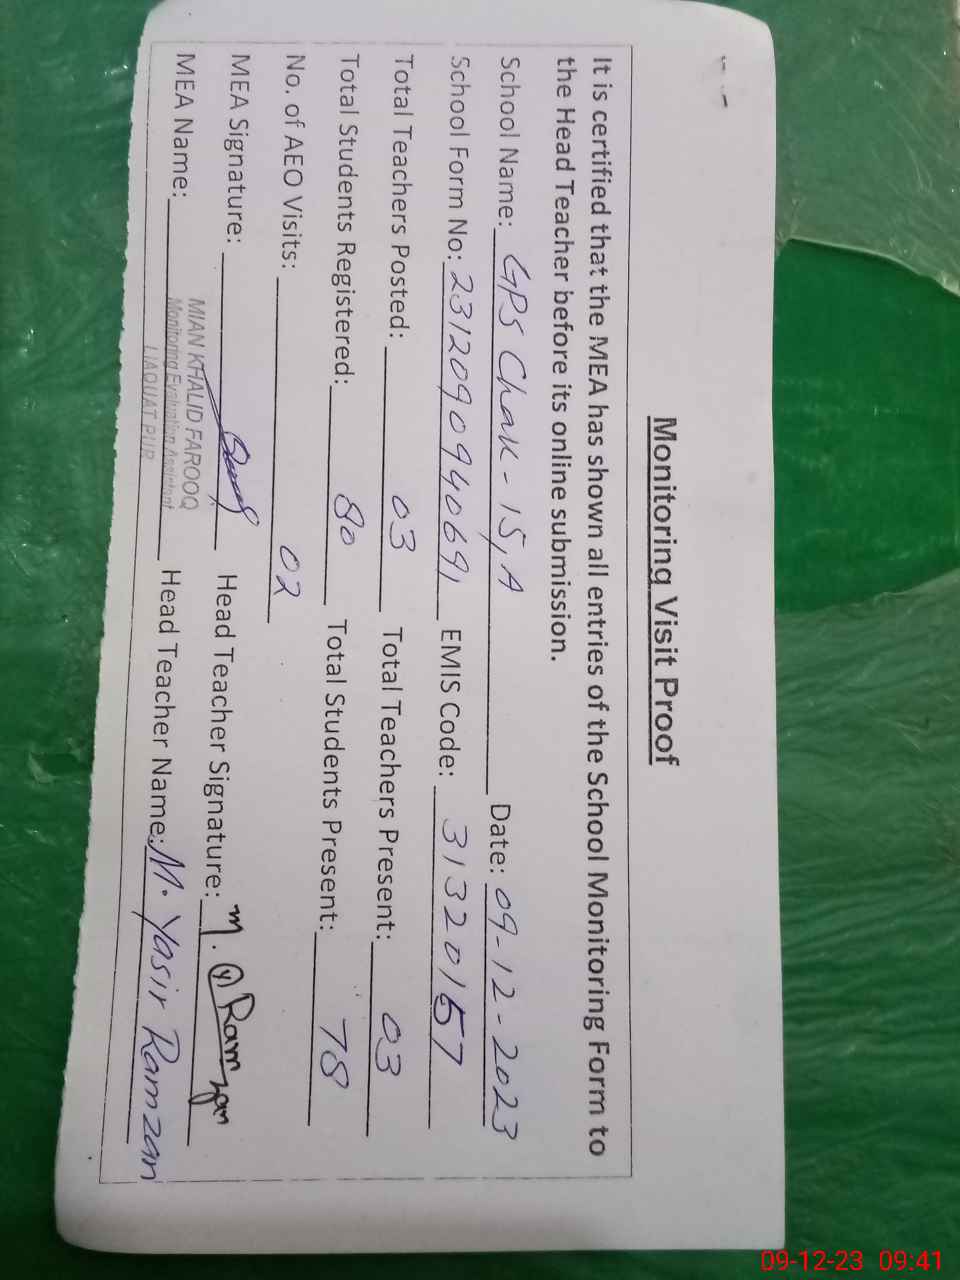 Monitoring Visit Proof
It is certified that the MEA has shown all entries of the School Monitoring Form to
the Head Teacher before its online submission.
School Name: GPS Chak-15, A Date: 09-12-2023
School Form No: 23120909940691 EMIS Code: 31320157
Total Teachers Posted: 03 Total Teachers Present: 03
Total Students Registered: 80 Total Students Present: 78
No. of AEO Visits: 02
MEA Signature: Head Teacher Signature: M. Y Ramzan
MIAN KHALID FAROOQ
MEA Name: Monitoring Evaluation Assistant Head Teacher Name: M. Yasir Ramzan
LIAQUAT PUR
09-12-23 09:41